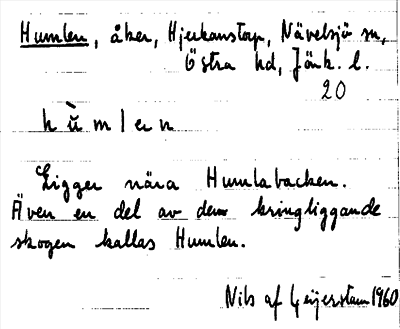 Humlen, åker, Hjerkanstorp, Nävelsjö sn,
Östra hd, Jönk. l.
20
hùmlen
Ligger nära Humlabacken.
Även en del av den kringliggande
skogen kallas Humlen.
Nils af Geijerstam 1960